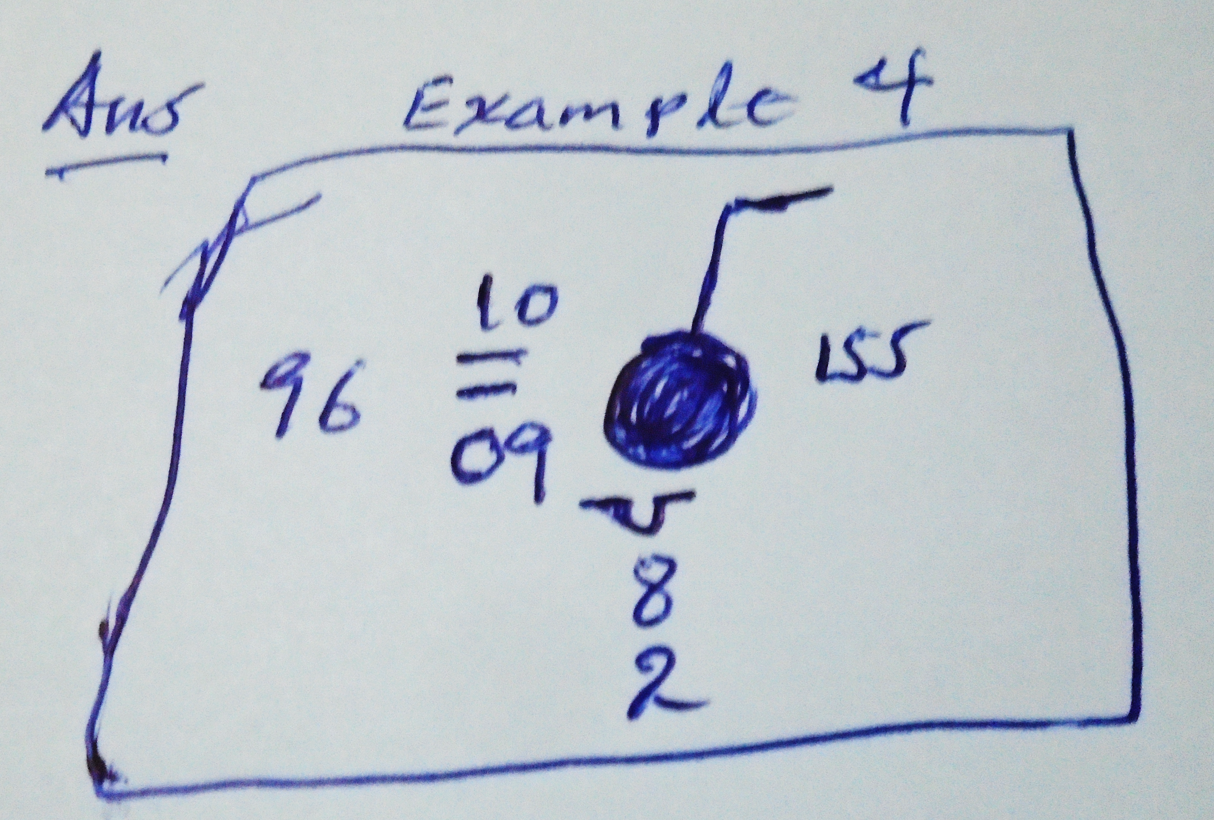 Ans Example 4
10
96 = 155
09
8
2